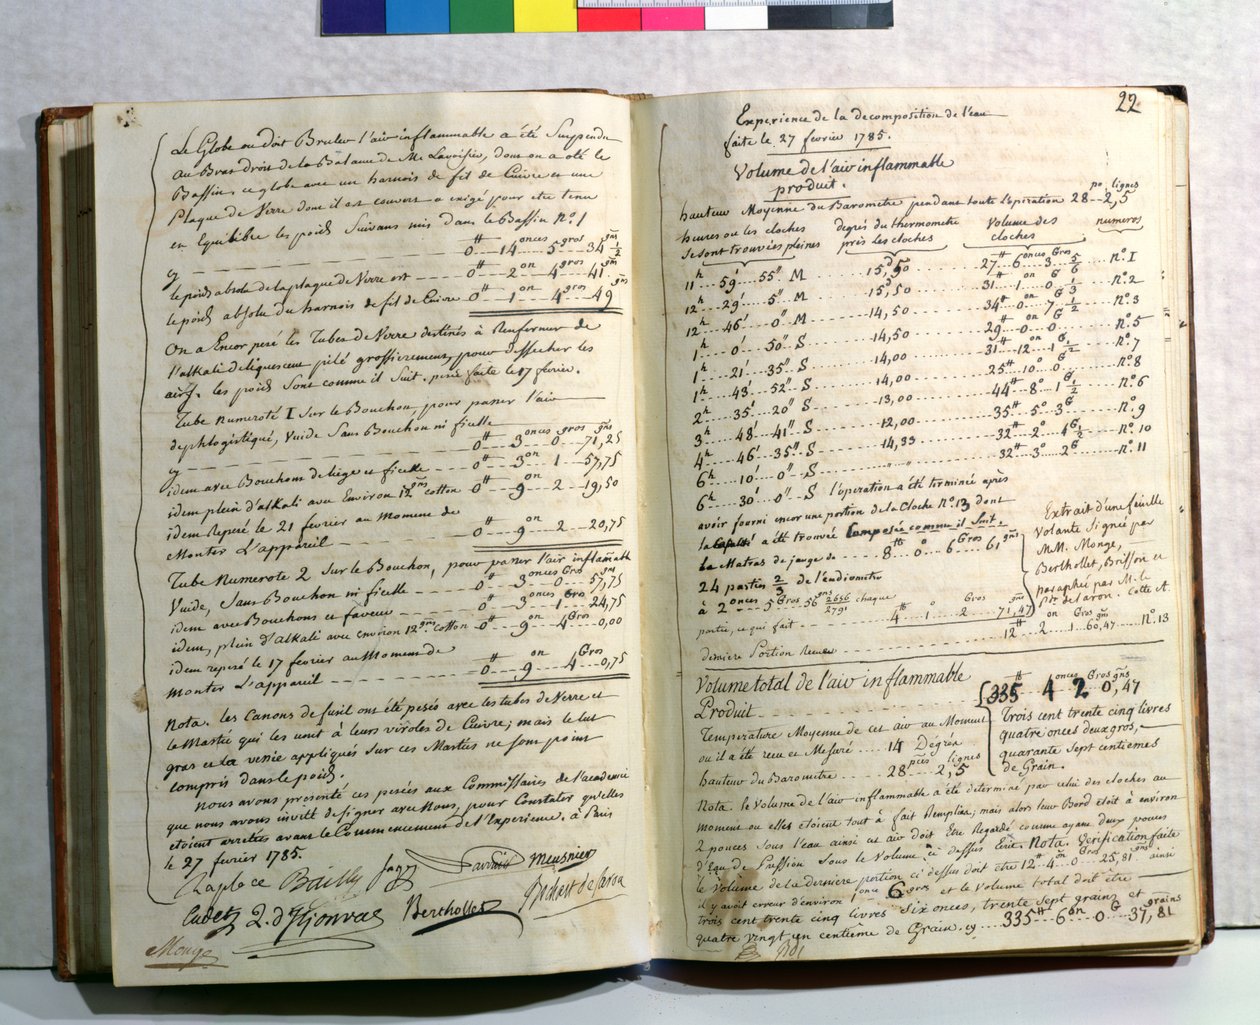 Le Globe ou doit Bruler l'air inflammable a été Suspendu
au Bras droit de la Balance de Mr Lavoisier, dont on a oté le
Bassin, ce globe avec un harnois de fil de Cuivre et une
Plaque de Verre dont il est couvert a exigé pour etre tenu
en Equilibre les poids Suivans mis dans le Bassin N.° 1
cy 0# 14 onces 5 gros 34 gns ½
le poids absolu de la plaque de Verre est 0# 2 on 4 gros 41 gns
le poids absolu du harnois de fil de Cuivre 0# 1 on 4 gros 49
On a Encor pesé les Tubes de Verre destinés à Renfermer de
l'alkali deliquescent pilé grossierement, pour dessecher les
airs. les poids Sont comme il Suit. pesée faite le 17 fevrier.
Tube numeroté I Sur le Bouchon, pour passer l'air
dephlogistiqué, Vuide Sans Bouchon ni ficelle
cy 0# 3 onces 0 gros 71,25 gns
idem avec Bouchons de liege et ficelle 0# 3 on 1 57,75
idem plein d'alkali avec Environ 12 gns cotton 0# 9 on 2 19,50
idem Repesé le 21 fevrier au Moment de
Monter L'appareil 0# 9 on 2 20,75
Tube Numerote 2 Sur le Bouchon, pour passer l'air inflamable
Vuide, Sans Bouchon ni ficelle 0# 3 onces 0 Gros 57,75
idem avec Bouchons et 0# 3 on 1 Gro 24,75
idem, plein d'alkali avec environ 12 gns cotton 0# 9 on 4 Gros 0,00
idem repesé le 17 fevrier au Moment de
Monter L'appareil 0# 9 on 4 Gros 0,75
Nota. les Canons de fusil ont été pesés avec les tubes de Verre et
le Mastic qui les unit à leurs viroles de Cuivre; mais le lut
gras et la vessie appliqués Sur ces Mastics ne sont point
Compris dans le poids.
Nous avons presenté ces pesées aux Commissaires de l'academie
que nous avons invité de signer avec Nous, pour Constater qu'elles
etoient arretées avant le Commencement de l'Experience. à Paris
le 27 fevrier 1785.
Laplace Bailly Sage Lavoisier Meusnier
Cadet Berthollet Bochart de Saron
Monge
22
Experience de la decomposition de l'eau
faite le 27 fevrier 1785.
Volume de l'air inflammable
produit.
hauteur Moyenne du Barometre pendant toute l'opération 28 po 2,5 lignes
heures ou les cloches Se sont trouvées pleines degrés du thermometre près Les cloches Volume des cloches numeros
11h 59' 55" M 15d,50 27# 6 onces 3 Gros 5/6 n.° 1
12h 29' 5" M 15d,50 31# 1 on 0 G 5/6 n.° 2
12h 46' 0" M 14,50 34# 0 on 7 G ½ n.° 3
1h 0' 50" S 14,50 29# 0 on 0 G n.° 5
1h 21' 35" S 14,00 31# 12 on 1 G ½ n.° 7
1h 43' 52" S 14,00 25# 10° 0 G n.° 8
2h 35' 20" S 13,00 44# 8° 1 G ½ n.° 6
3h 48' 41" S 12,00 35# 5° 3 G n.° 9
4h 46' 35" S 14,33 32# 2° 4 G ½ n.° 10
6h 10' 0" S " " 32# 3° 2 G n.° 11
6h 30' 0" S l'operation a été terminée après
avoir fourni encor une portion de la Cloche N.° 13 dont
la a été trouvée Composée comme il Suit.
Le Matras de jauge de 8# 0° 6 Gros 61 gns
24 parties 2/3 de l'eudiometre
à 2 onces 5 Gros 56 gns 2656/2791 chaque
portée, ce qui fait 4# 1° 2 Gros 71,47 gns
derniere Portion Recue 12# 2 on 1 Gros 60,47 gns N.° 13
Extrait d'une feuille
Volante Signée par
MM. Monge,
Berthollet, Brisson et
paraphée par M. le
Pr. de Saron. Cotte A.
Volume total de l'air inflammable
Produit 335# 4 onces 2 Gros 0,47 gns
Trois cent trente cinq livres
quatre onces deux gros,
quarante Sept centiemes
de Grain.
Temperature Moyenne de cet air au Moment
ou il a été recu et Mesuré 14 Degrés
hauteur du Barometre 28 pces 2,5 lignes
Nota. le Volume de l'air inflammable a été determiné par celui des cloches au
moment ou elles etoient tout à fait Remplies; mais alors leur Bord etoit à environ
2 pouces Sous l'eau ainsi cet air doit Etre Regardé comme ayant deux pouces
d'Eau de Pression Sous le Volume ci dessus Ecrit. Nota. Verification faite
le Volume de la derniere portion ci dessus doit etre 12# 4 on 0 Gros 25,81 gns ainsi
il y avoit erreur d'environ 6 gros et le Volume total doit être
trois cent trente cinq livres Six onces, trente Sept grains et
quatre vingt un centieme de Grain. cy 335# 6 on 0 G 37,81 grains